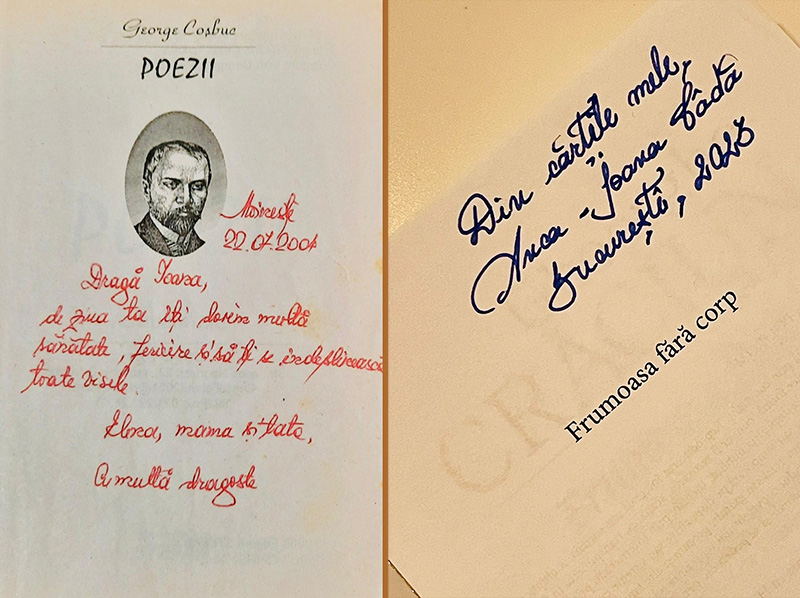 George Coșbuc
POEZII
Moinești
22.07.2001
Dragă Ioana,
de ziua ta îți dorim multă
sănătate, fericire și să ți se îndeplinească
toate visele.
mama și tata,
Cu multă dragoste
Din cărțile mele,
Anca-Ioana
București, 2023
Frumoasa fără corp